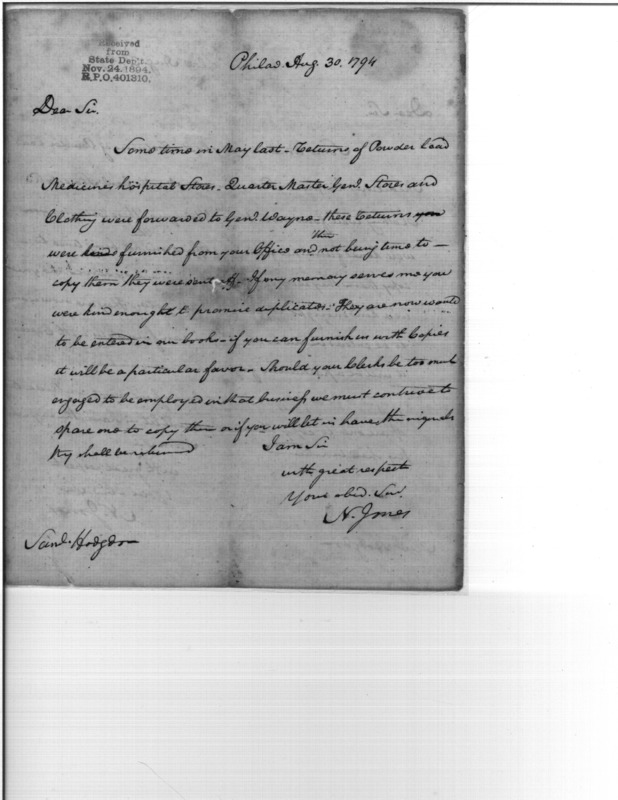 Received
from
State Dep't.
Nov. 24. 1894.
R.P.O. 401310.
Philad. Aug. 30. 1794
Dear Sir.
Some time in May last - Returns of Powder Lead
Medicines hospital Stores - Quarter Master Genl. Stores and
Clothing were forwarded to Genl. Wayne - these Returns
were furnished from your Office and not being time to -
then
copy them they were sent off - If my memory serves me you
were kind enought to promise duplicates - They are now wanted
to be entered in our books - if you can furnish us with Copies
it will be a particular favor - Should your Clerks be too much
engaged to be employed in that business we must contrive to
spare one to copy them or if you will let us have the originals
they shall be returned
I am Sir
with great respect
Your obed. Ser.
N. Jones
Saml. Hodgdon